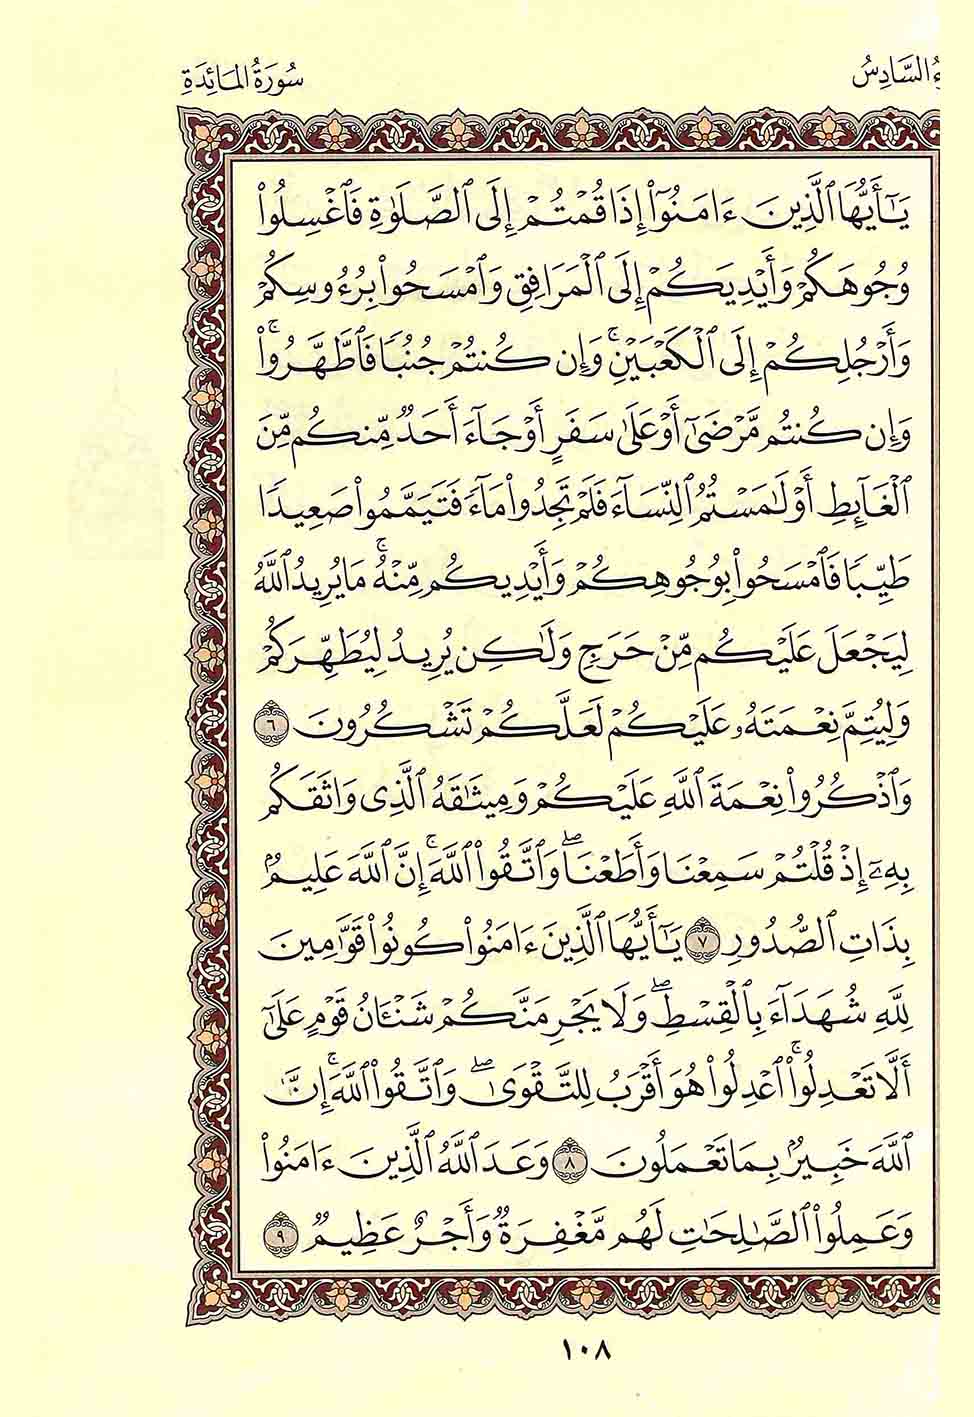 ءُ السَّادِسُ
سُورَةُ المَائِدَةِ
يَٰٓأَيُّهَا ٱلَّذِينَ ءَامَنُوٓا۟ إِذَا قُمْتُمْ إِلَى ٱلصَّلَوٰةِ فَٱغْسِلُوا۟
وُجُوهَكُمْ وَأَيْدِيَكُمْ إِلَى ٱلْمَرَافِقِ وَٱمْسَحُوا۟ بِرُءُوسِكُمْ
وَأَرْجُلِكُمْ إِلَى ٱلْكَعْبَيْنِ ۚ وَإِن كُنتُمْ جُنُبًا فَٱطَّهَّرُوا۟ ۚ
وَإِن كُنتُم مَّرْضَىٰٓ أَوْ عَلَىٰ سَفَرٍ أَوْ جَآءَ أَحَدٌ مِّنكُم مِّنَ
ٱلْغَآئِطِ أَوْ لَٰمَسْتُمُ ٱلنِّسَآءَ فَلَمْ تَجِدُوا۟ مَآءً فَتَيَمَّمُوا۟ صَعِيدًا
طَيِّبًا فَٱمْسَحُوا۟ بِوُجُوهِكُمْ وَأَيْدِيكُم مِّنْهُ ۚ مَا يُرِيدُ ٱللَّهُ
لِيَجْعَلَ عَلَيْكُم مِّنْ حَرَجٍ وَلَٰكِن يُرِيدُ لِيُطَهِّرَكُمْ
وَلِيُتِمَّ نِعْمَتَهُۥ عَلَيْكُمْ لَعَلَّكُمْ تَشْكُرُونَ ٦
وَٱذْكُرُوا۟ نِعْمَةَ ٱللَّهِ عَلَيْكُمْ وَمِيثَٰقَهُ ٱلَّذِى وَاثَقَكُم
بِهِۦٓ إِذْ قُلْتُمْ سَمِعْنَا وَأَطَعْنَا ۖ وَٱتَّقُوا۟ ٱللَّهَ ۚ إِنَّ ٱللَّهَ عَلِيمٌۢ
بِذَاتِ ٱلصُّدُورِ ٧ يَٰٓأَيُّهَا ٱلَّذِينَ ءَامَنُوا۟ كُونُوا۟ قَوَّٰمِينَ
لِلَّهِ شُهَدَآءَ بِٱلْقِسْطِ ۖ وَلَا يَجْرِمَنَّكُمْ شَنَـَٔانُ قَوْمٍ عَلَىٰٓ
أَلَّا تَعْدِلُوا۟ ۚ ٱعْدِلُوا۟ هُوَ أَقْرَبُ لِلتَّقْوَىٰ ۖ وَٱتَّقُوا۟ ٱللَّهَ ۚ إِنَّ
ٱللَّهَ خَبِيرٌۢ بِمَا تَعْمَلُونَ ٨ وَعَدَ ٱللَّهُ ٱلَّذِينَ ءَامَنُوا۟
وَعَمِلُوا۟ ٱلصَّٰلِحَٰتِ لَهُم مَّغْفِرَةٌ وَأَجْرٌ عَظِيمٌ ٩
١٠٨